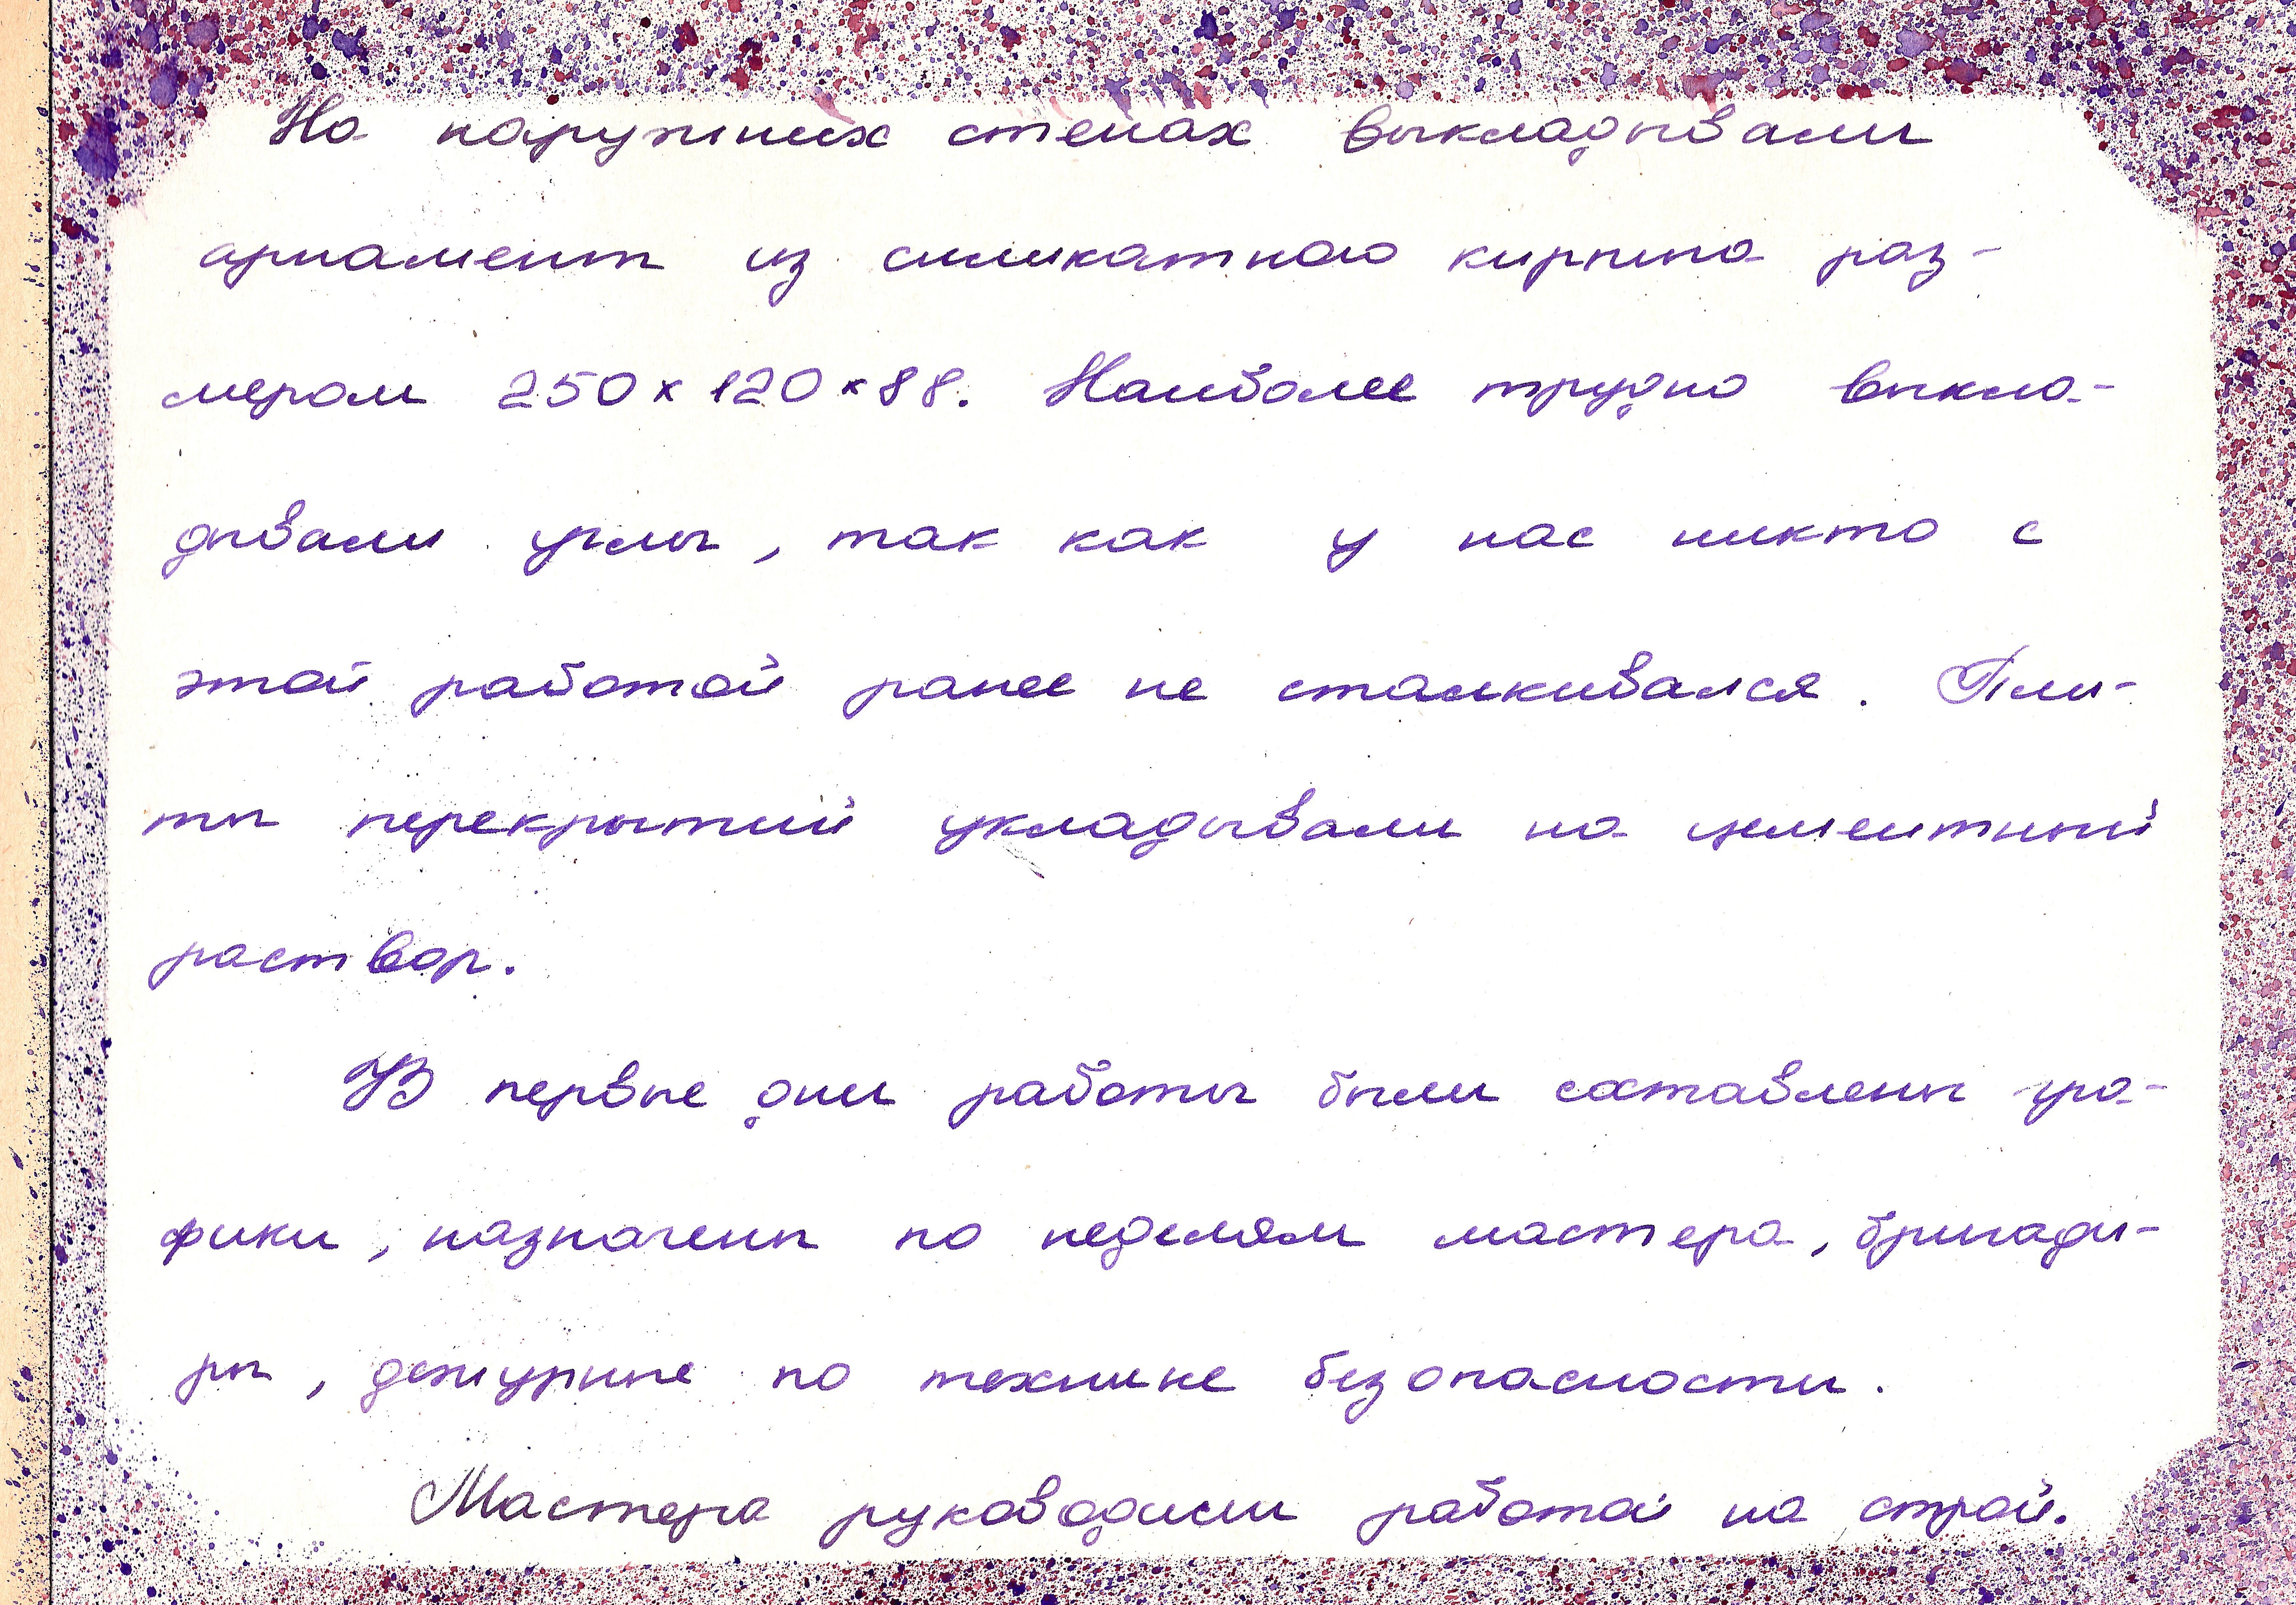 На наружных стенах выкладывали
арнамент из силикатного кирпича раз-
мером 250х120х88. Наиболее трудно выкла-
дывали углы, так как у нас никто с
этой работой ранее не сталкивался. Пли-
ты перекрытий укладывали на цементный
раствор.
В первые дни работы были составлены гра-
фики, назначены по неделям мастера, бригади-
ры, дежурные по технике безопасности.
Мастера руководили работой на строй.